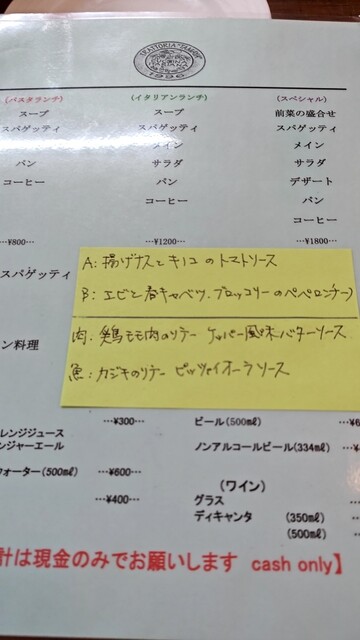 TRATTORIA
1996
(パスタランチ) (イタリアンランチ) (スペシャル)
スープ スープ 前菜の盛合せ
スパゲッティ スパゲッティ スパゲッティ
メイン メイン
パン サラダ サラダ
コーヒー パン デザート
コーヒー パン
コーヒー
---¥800--- ---¥1200--- ---¥1800---
スパゲッティ
A:揚げナスと キノコ のトマトソース
B:エビと春キャベツ、ブロッコリーのペペロンチーノ
ン料理
肉:鶏モモ肉のソテー ケッパー風味バターソース
魚:カジキのソテー ピッツァイオーラソース
---¥300--- ビール(500㎖) ---¥6
レンジジュース
ンジャーエール ノンアルコールビール(334㎖) ---¥
ウォーター(500㎖) ---¥600---
(ワイン)
---¥400--- グラス
ディキャンタ (350㎖)
(500㎖)
計は現金のみでお願いします cash only】